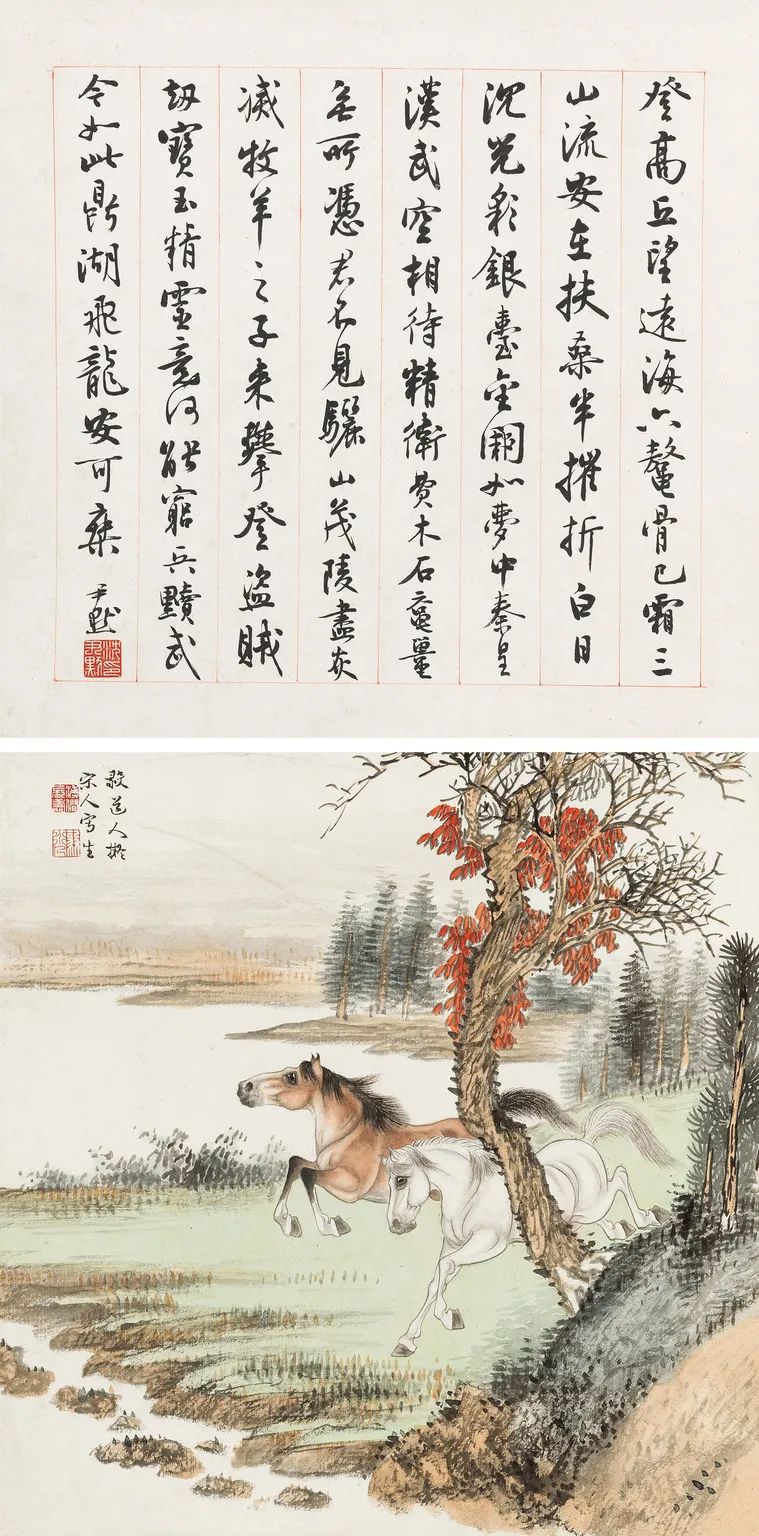 登高丘望遠海六鰲骨已霜三
山流安在扶桑半摧折白日
沈光彩銀臺金闕如夢中秦皇
漢武空相待精衛費木石黿鼉
無所憑君不見驪山茂陵盡灰
滅牧羊之子來攀登盜賊
劫寶玉精靈竟何能窮兵黷武
今如此鼎湖飛龍安可乘 尹默
沈尹默印
毅道人擬
宋人寫生